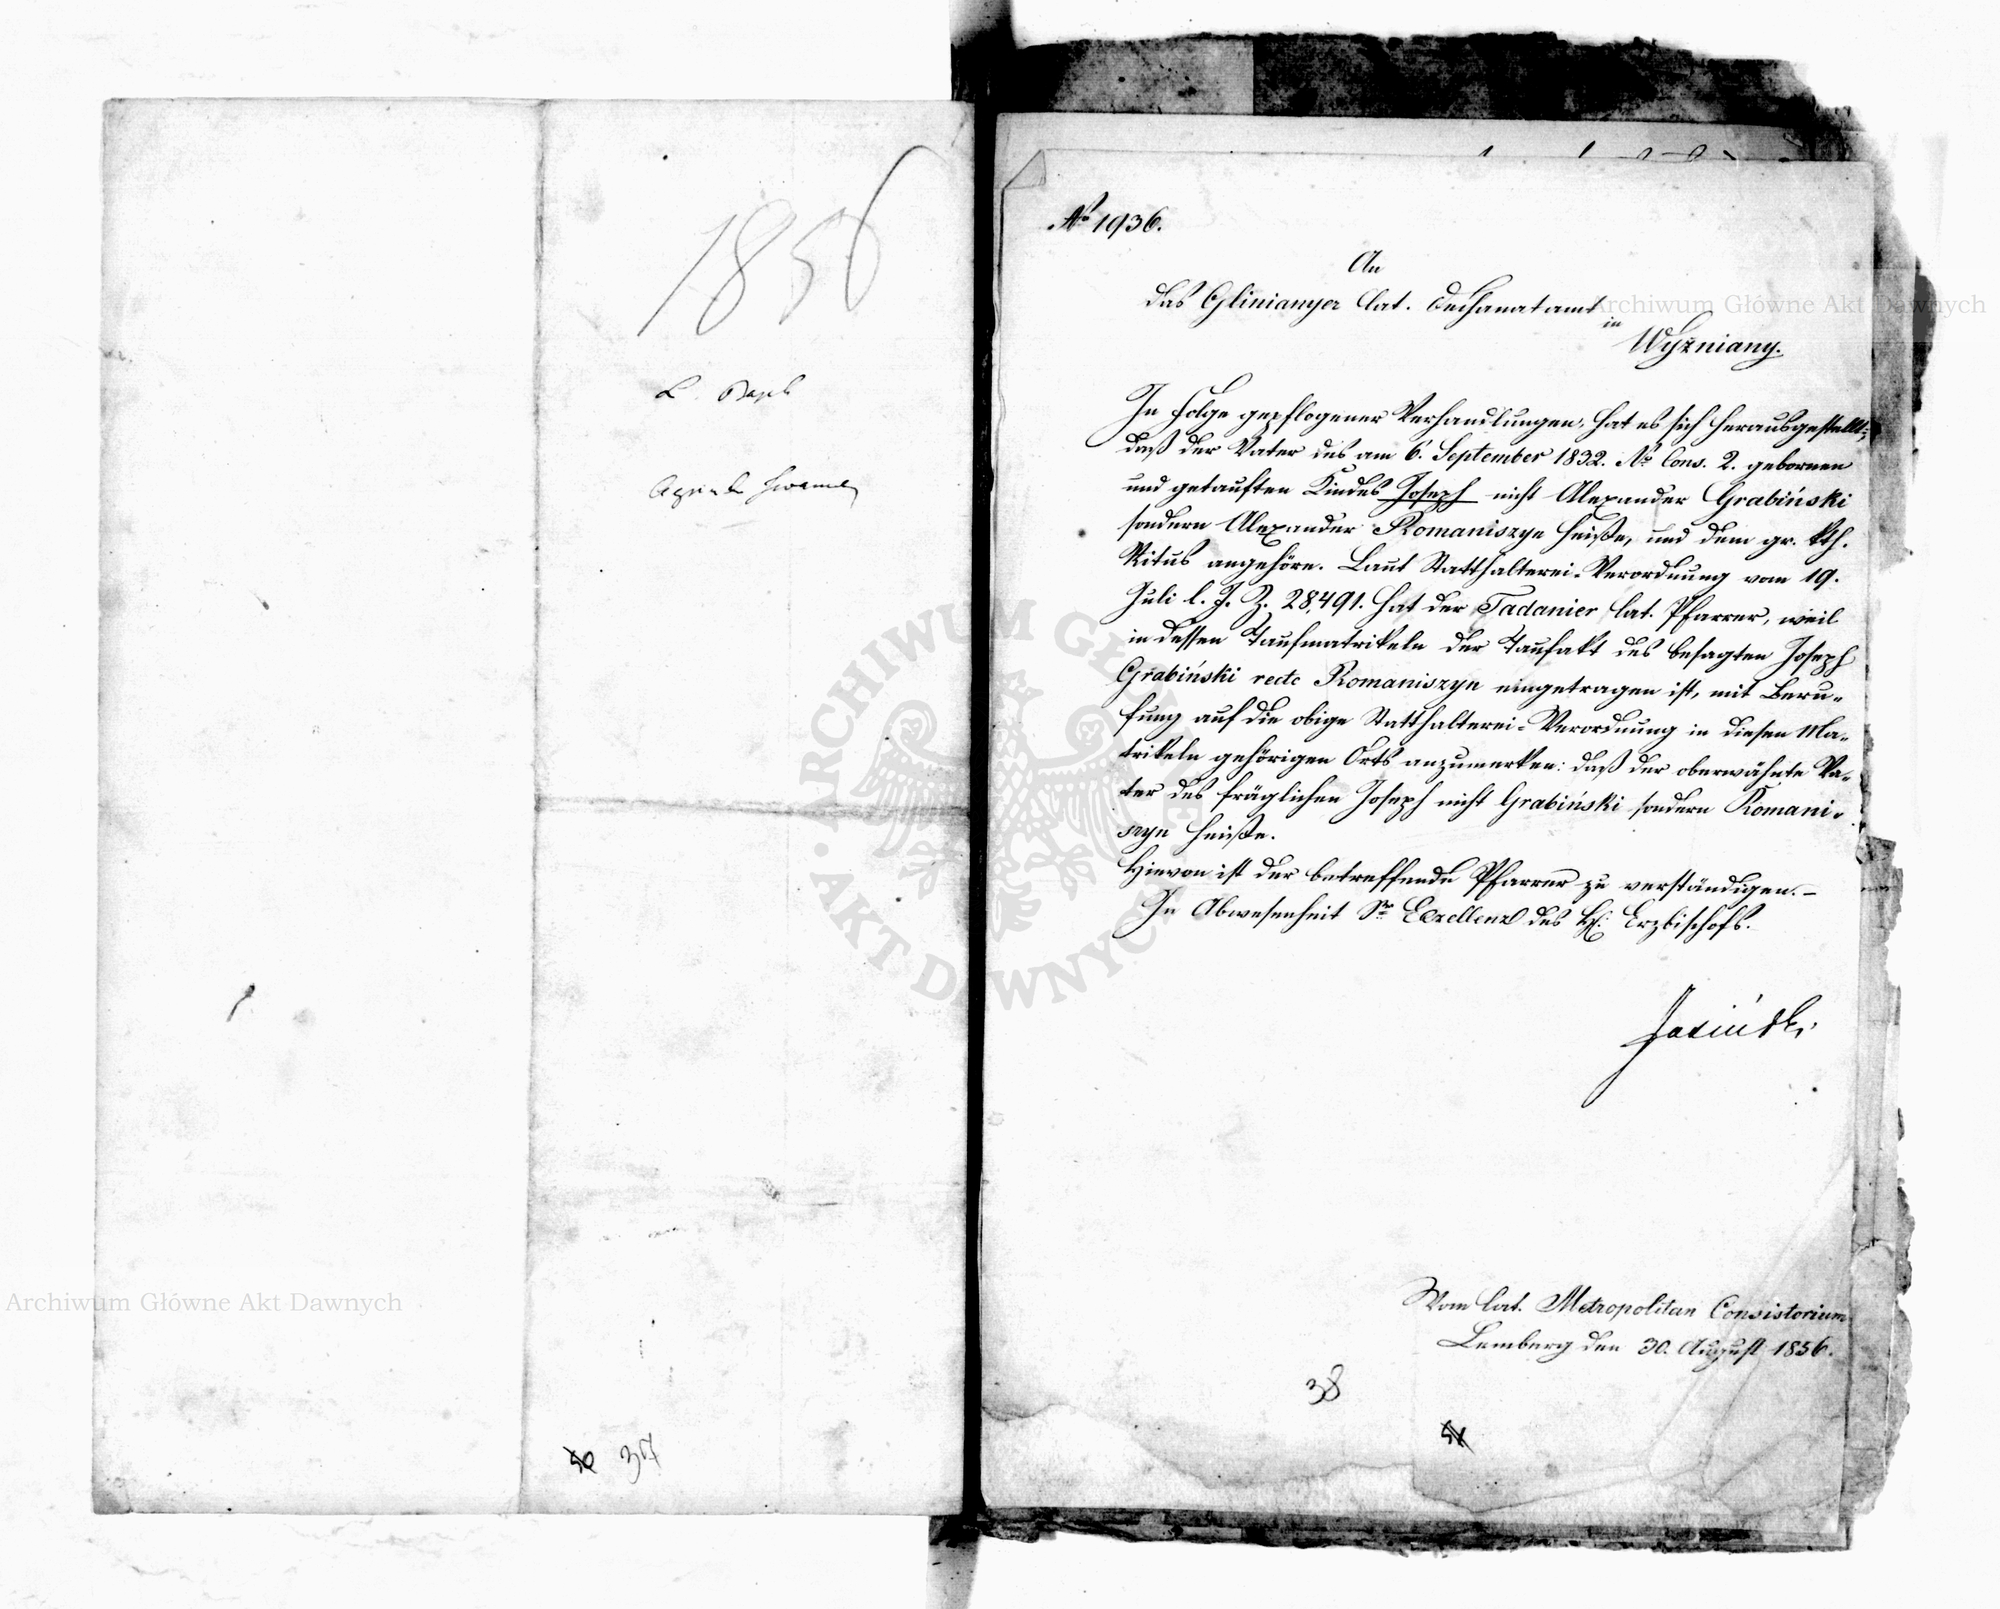 1856
L. Bapt
№ 1936.
An
das Glinianyer lat. Dechanatamt
in
Wyżniany.
In Folge gepflogener Verhandlungen, hat es sich herausgestellt,
daß der Vater des am 6. September 1832. № Cons. 2. gebornen
und getauften Kindes Joseph nicht Alexander Grabiński
sondern Alexander Romaniszyn heiße, und dem gr. kth.
Ritus angehöre. Laut Statthalterei-Verordnung vom 19.
Juli l. J. Z. 28,491. hat der Tadanier lat. Pfarrer, weil
in dessen Taufmatrikeln der Taufakt des besagten Joseph
Grabiński recte Romaniszyn eingetragen ist, mit Beru-
fung auf die obige Statthalterei-Verordnung in diesen Ma-
trikeln gehörigen Orts anzumerken: daß der oberwähnte Va-
ter des fräglichen Joseph nicht Grabiński sondern Romani-
szyn heiße.
Hievon ist der betreffende Pfarrer zu verständigen.-
In Abwesenheit Sr Excellenz des H: Erzbischofs.
Vom lat. Metropolitan Consistorium
Lemberg den 30. August 1856.
38
37
Archiwum Główne Akt Dawnych
Archiwum Główne Akt Dawnych
ARCHIWUM GŁÓWNE
AKT DAWNYCH